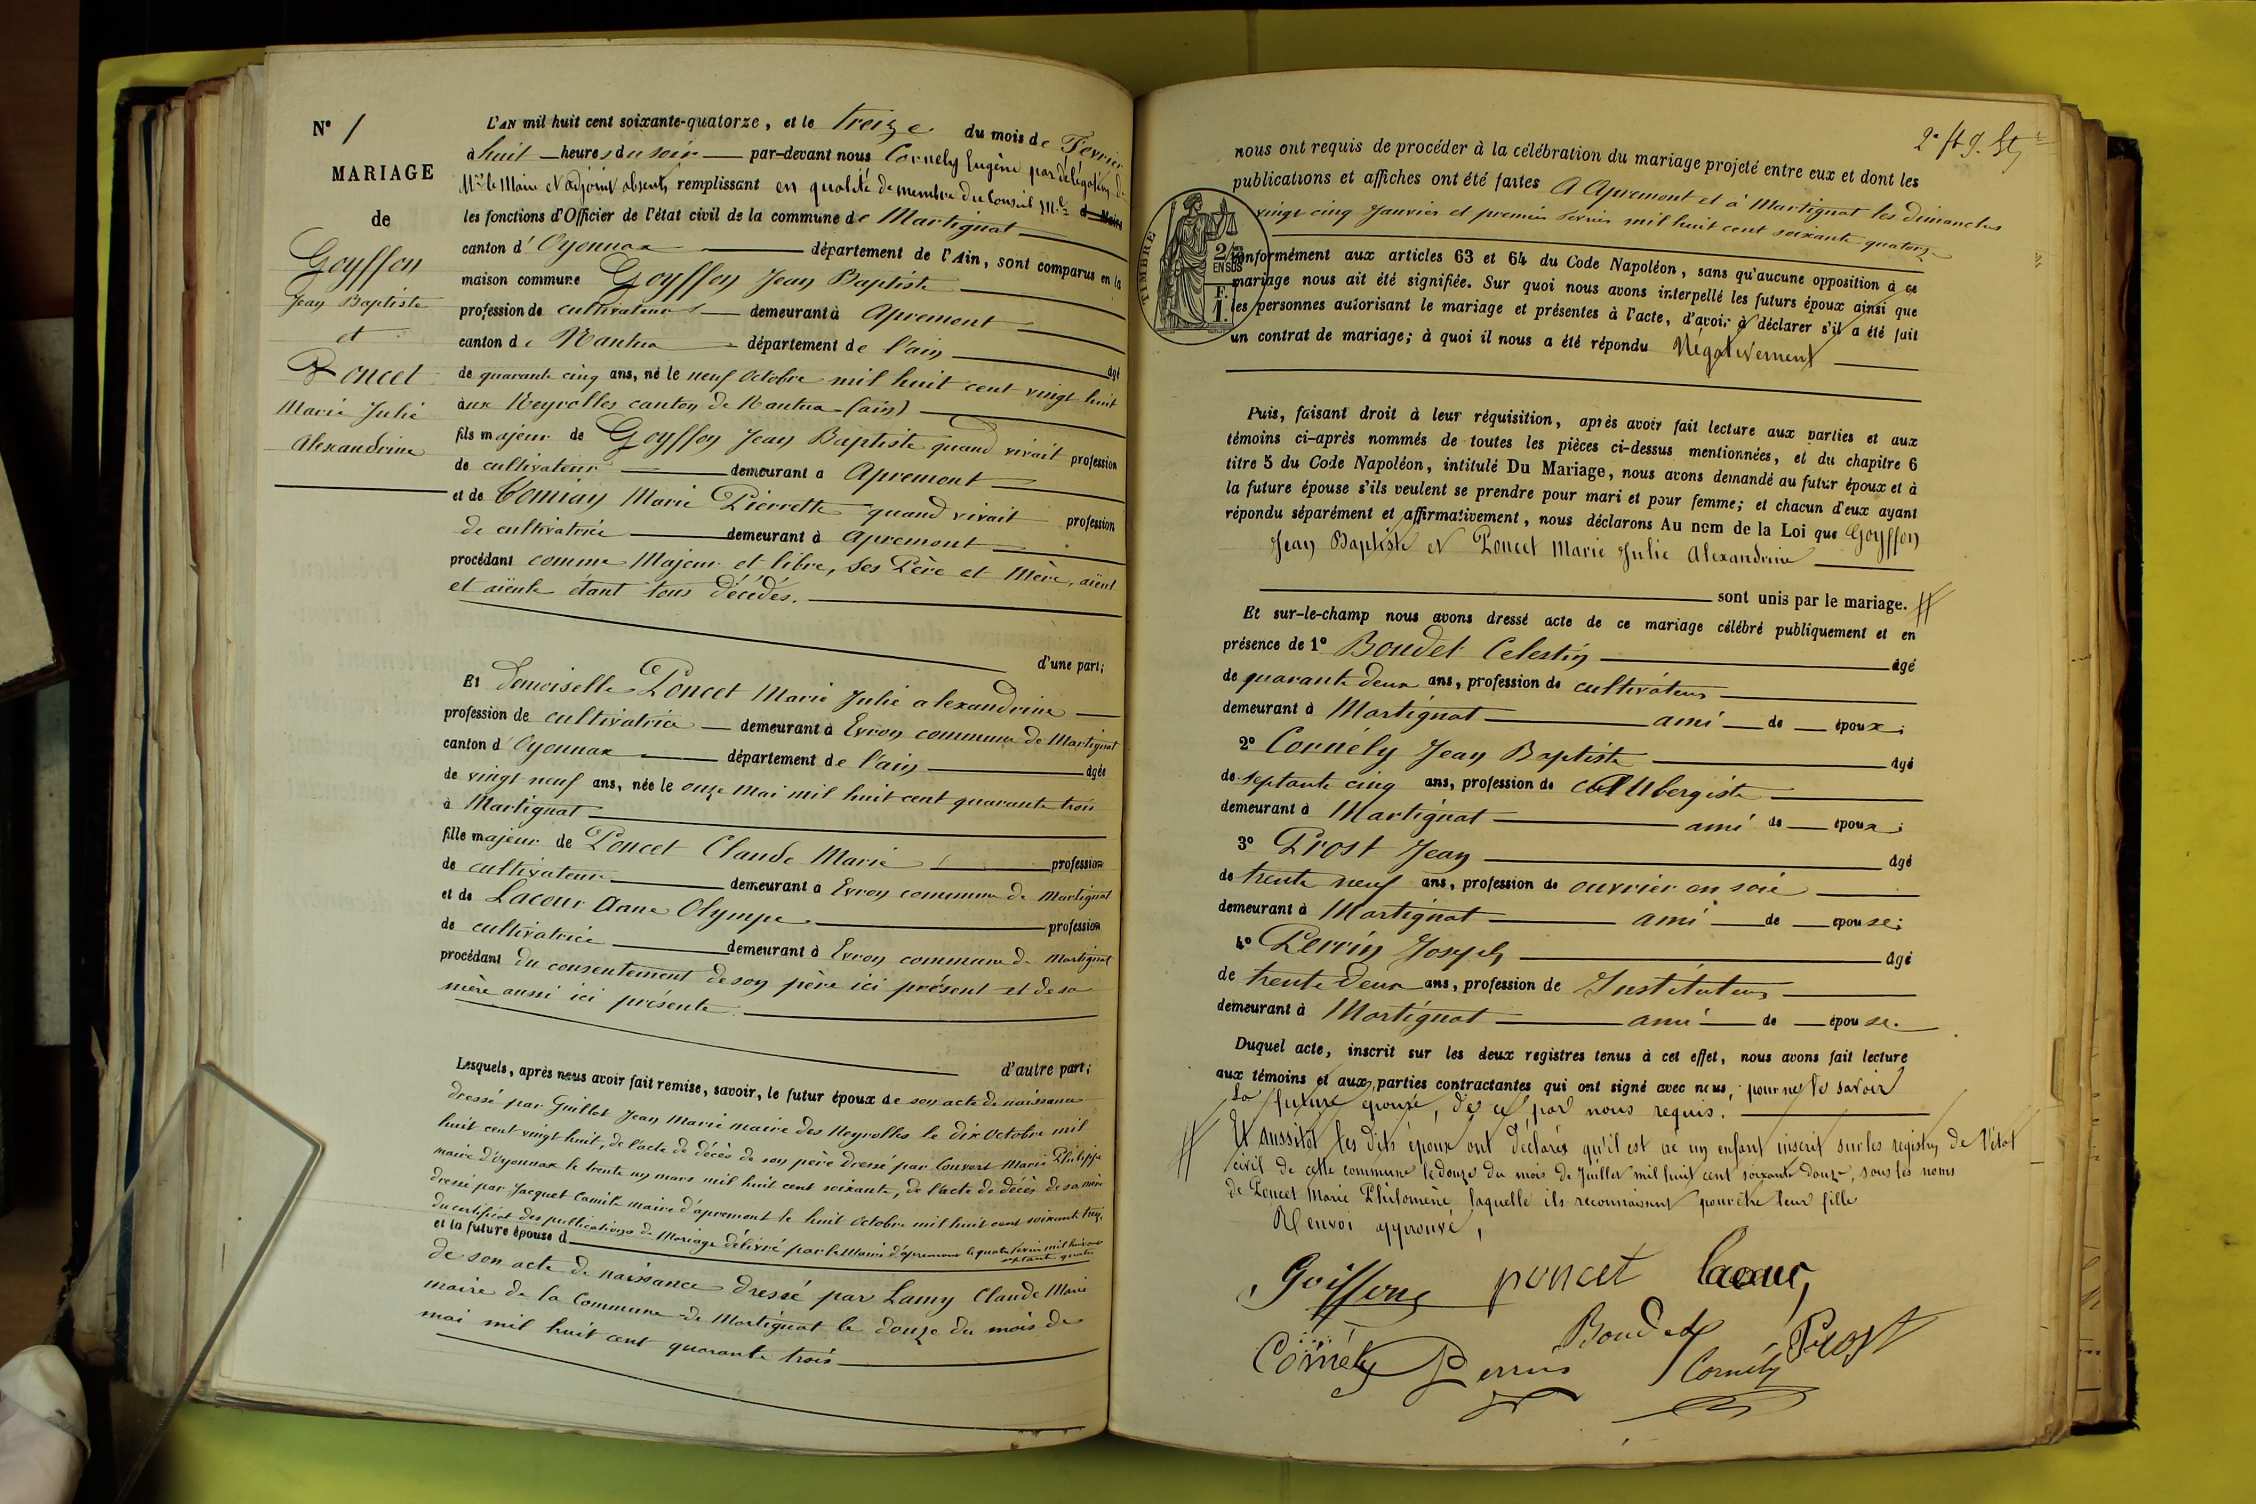 N° 1
MARIAGE
de
Goyffon
Jean Baptiste
et
Poncet
Marie Julie
Alexandrine
L'AN mil huit cent soixante-quatorze, et le treize du mois de Février
à huit heures du soir par-devant nous Cornély Eugène par délégation de
Mr le Maire et adjoint absents remplissant en qualité de membre du Conseil Mal
les fonctions d'Officier de l'état civil de la commune de Martignat
canton d'Oyonnax département de l'Ain, sont comparus en la
maison commune Goyffon Jean Baptiste
profession de cultivateur demeurant à Apremont
canton de Nantua département de l'ain
âgé
de quarante cinq ans, né le neuf Octobre mil huit cent vingt huit
aux Neyrolles canton de Nantua (ain)
fils majeur de Goyffon Jean Baptiste quand vivait profession
de cultivateur demeurant à Apremont
et de Marie Pierrette quand vivait profession
de cultivatrice demeurant à Apremont
procédant comme Majeur et libre, ses Père et Mère, aïeul
et aïeule étant tous décédés.
d'une part;
Et demoiselle Poncet Marie Julie alexandrine
profession de cultivatrice demeurant à Evron commune de Martignat
canton d'Oyonnax département de l'ain âgée
de vingt neuf ans, née le onze mai mil huit cent quarante trois
à Martignat
fille majeur de Poncet Claude Marie profession
de cultivateur demeurant à Evron commune de Martignat
et de Lacour Anne Olympe profession
de cultivatrice demeurant à Evron commune de Martignat
procédant du consentement de son père ici présent et de sa
mère aussi ici présente
d'autre part;
Lesquels, après nous avoir fait remise, savoir, le futur époux de son acte de naissance
dressé par Guillot Jean Marie maire des Neyrolles le dix Octobre mil
huit cent vingt huit, de l'acte de décès de son père dressé par Convert Marie Philippe
maire d'Oyonnax le trente un mars mil huit cent soixante, de l'acte de décès de sa mère
dressé par Jacquet Camille maire d'apremont le huit Octobre mil huit cent soixante treize,
du certificat des publications de Mariage délivré par le Maire d'apremont le quatre février mil huit cent
septante quatre
et la future épouse d
de son acte de naissance dressé par Lamy Claude Marie
maire de la Commune de Martignat le douze du mois de
mai mil huit cent quarante trois
nous ont requis de procéder à la célébration du mariage projeté entre eux et dont les
publications et affiches ont été faites A Apremont et à Martignat les dimanches
vingt cinq Janvier et premier Février mil huit cent soixante quatorze
TIMBRE
2/10
EN SUS
F.
1.
conformément aux articles 63 et 64 du Code Napoléon, sans qu'aucune opposition à ce
mariage nous ait été signifiée. Sur quoi nous avons interpellé les futurs époux ainsi que
les personnes autorisant le mariage et présentes à l'acte, d'avoir à déclarer s'il a été fait
un contrat de mariage; à quoi il nous a été répondu Négativement
Puis, faisant droit à leur réquisition, après avoir fait lecture aux parties et aux
témoins ci-après nommés de toutes les pièces ci-dessus mentionnées, et du chapitre 6
titre 5 du Code Napoléon, intitulé Du Mariage, nous avons demandé au futur époux et à
la future épouse s'ils veulent se prendre pour mari et pour femme; et chacun d'eux ayant
répondu séparément et affirmativement, nous déclarons Au nom de la Loi que Goyffon
Jean Baptiste et Poncet Marie Julie Alexandrine
sont unis par le mariage. #
Et sur-le-champ nous avons dressé acte de ce mariage célébré publiquement et en
présence de 1° Boudet Celestin âgé
de quarante deux ans, profession de cultivateur
demeurant à Martignat ami de époux;
2° Cornély Jean Baptiste âgé
de septante cinq ans, profession de Aubergiste
demeurant à Martignat ami de époux;
3° Prost Jean âgé
de trente neuf ans, profession de ouvrier en soie
demeurant à Martignat ami de épouse;
4° Perrin Joseph âgé
de trente deux ans, profession de Instituteur
demeurant à Martignat ami de épouse.
Duquel acte, inscrit sur les deux registres tenus à cet effet, nous avons fait lecture
aux témoins et aux parties contractantes qui ont signé avec nous, pour ne le savoir
La future épouse, de ce par nous requis.
# Et aussitôt les dits époux ont déclarés qu'il est né un enfant inscrit sur les registres de l'état
civil de cette commune le douze du mois de Juillet mil huit cent soixante douze, sous les noms
de Poncet Marie Philomène, laquelle ils reconnaissent pour être leur fille
Renvoi approuvé,
Goiffon poncet Lacour
Cornély Perrin Boudet Cornély Prost